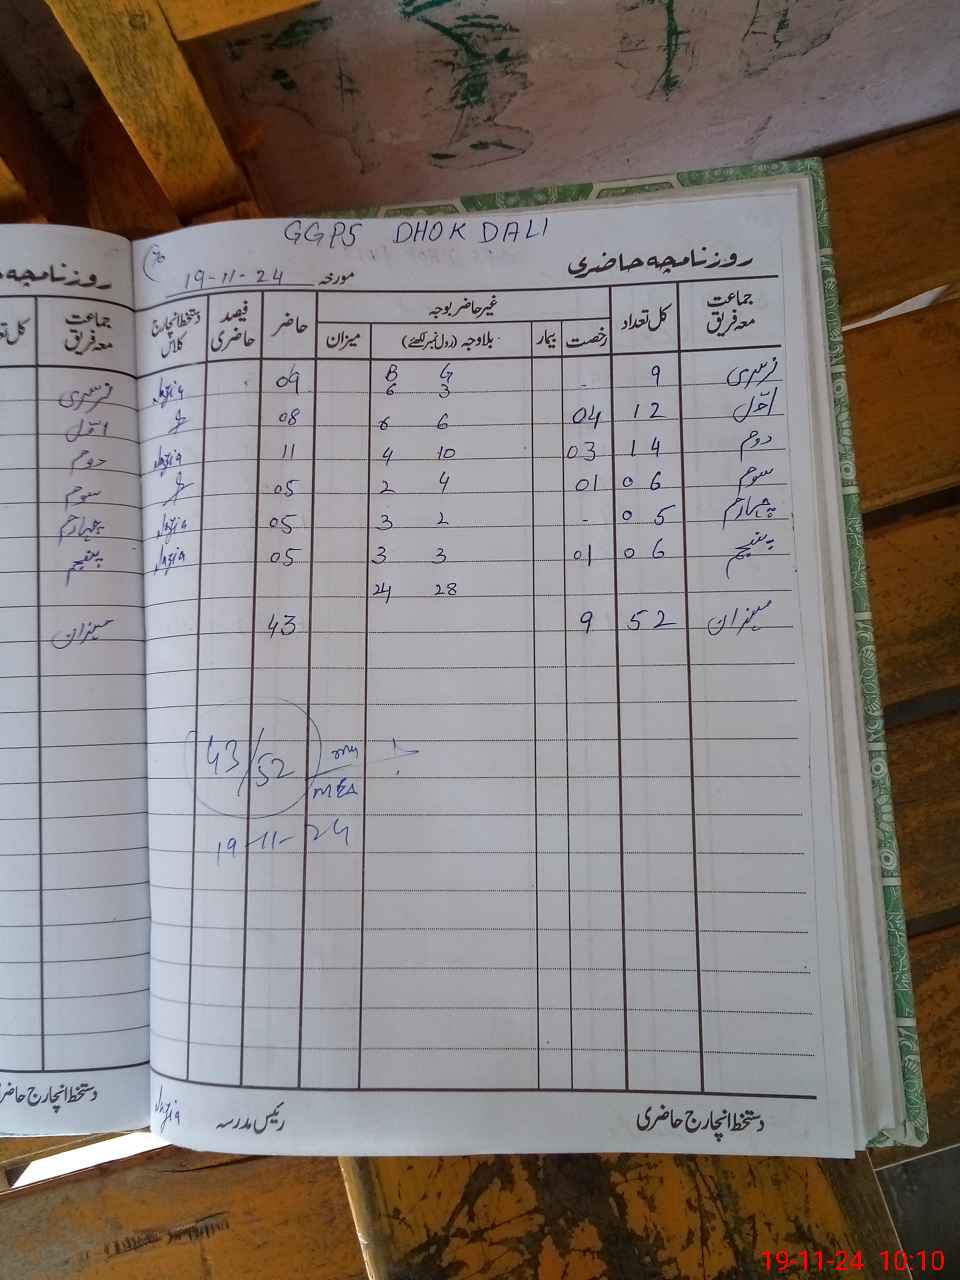 GGPS DHOK DALI
روزنامچہ حاضری
مورخہ 19-11-24
جماعت معہ فریق کل تعداد غیر حاضر بوجہ حاضر فیصد حاضری دستخط انچارج کلاس
رخصت بیمار بلاوجہ (رول نمبر لکھئے) میزان
نرسری 9 - G B 09 Nazia
3 6
اوّل 12 04 6 6 08
دوم 14 03 10 4 11 Nazia
سوم 06 01 4 2 05
چہارم 05 - 2 3 05 Nazia
پنجم 06 01 3 3 05 Nazia
28 24
میزان 52 9 43
43/52
MEA
19-11-24
دستخط انچارج حاضری رئیس مدرسہ Nazia
روزنامچہ
جماعت معہ فریق
نرسری
اوّل
دوم
سوم
چہارم
پنجم
میزان
دستخط انچارج
19-11-24 10:10